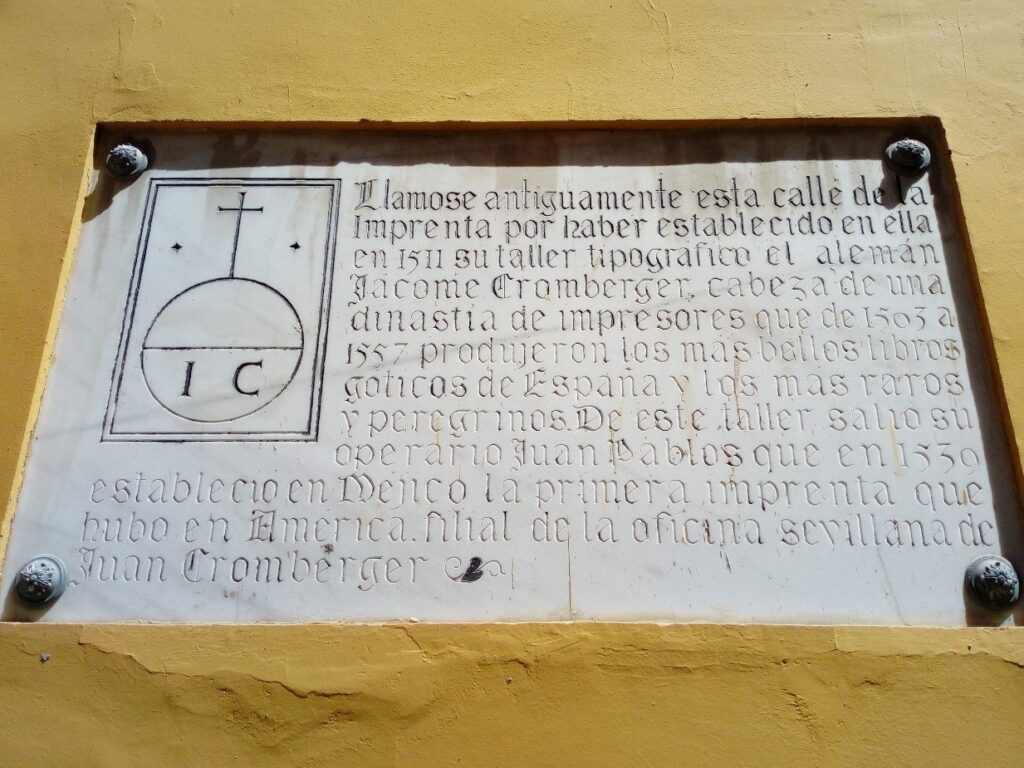 I C
Llamose antiguamente esta calle de la
Imprenta por haber establecido en ella
en 1511 su taller tipográfico el alemán
Jacome Cromberger, cabeza de una
dinastia de impresores que de 1503 a
1557 produjeron los mas bellos libros
goticos de España y los mas raros
y peregrinos. De este taller, salio su
operario Juan Pablos que en 1539
establecio en Mejico la primera imprenta que
hubo en America. filial de la oficina sevillana de
Juan Cromberger